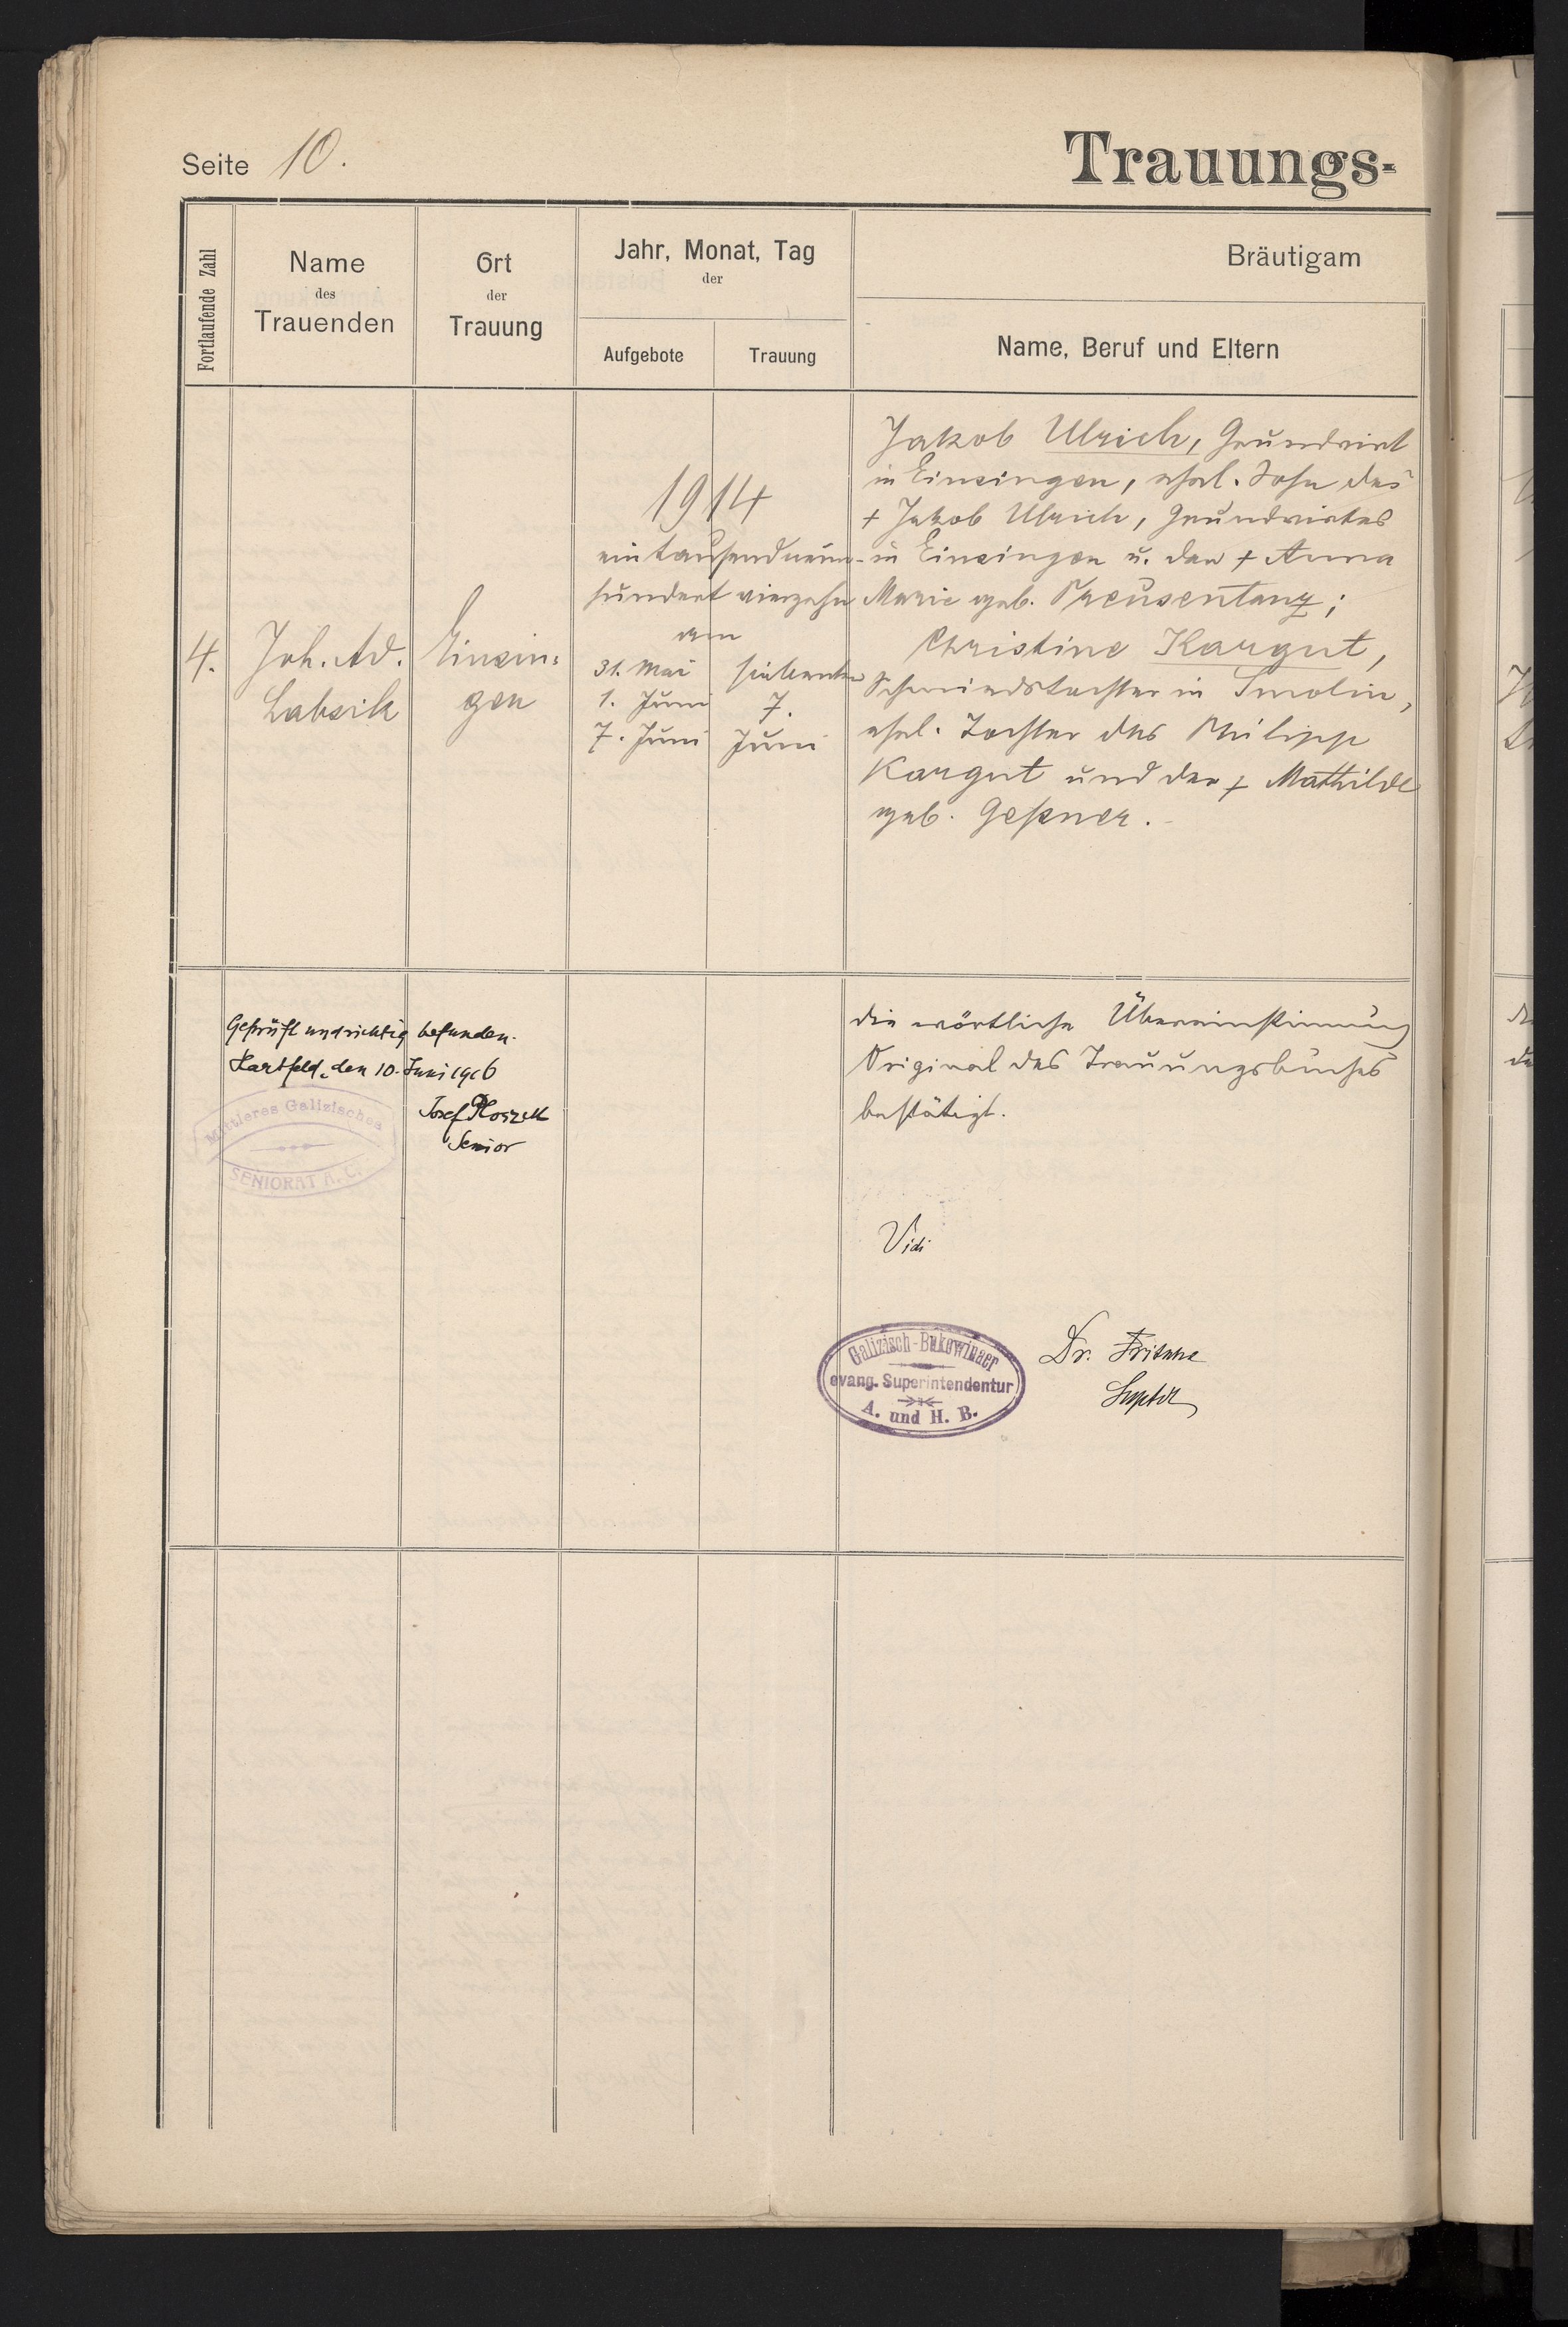 Seite 10.
Trauungs-
Fortlaufende Zahl
Name
des
Trauenden
Ort
der
Trauung
Jahr, Monat, Tag
der
Aufgebote
Trauung
Bräutigam
Name, Beruf und Eltern
4.
Joh. Ad.
Labsik
Einsin=
gen
1914
eintausendneun-
hundert vierzehn
am
31. Mai
1. Juni
7. Juni
siebenten
7.
Juni
Jakob Ulrich, Grundwirt
in Einsingen, ehel. Sohn des
+ Jakob Ulrich, Grundwirtes
in Einsingen u. der + Anna
Marie geb. Preusentanz;
Christine Kargut,
Schmiedstochter in Smolin,
ehel. Tochter des Philipp
Kargut und der + Mathilde
geb. Geßner.
Geprüft und richtig befunden.
Hartfeld, den 10. Juni 1916
Josef
Senior
Mittleres Galizisches
SENIORAT A. C.
die wörtliche Übereinstimmung
Original des Trauungsbuches
bestätigt.
Vidi
Galizisch-Bukowinaer
evang. Superintendentur
A. und H. B.
Dr. Fritsche
Suptdt